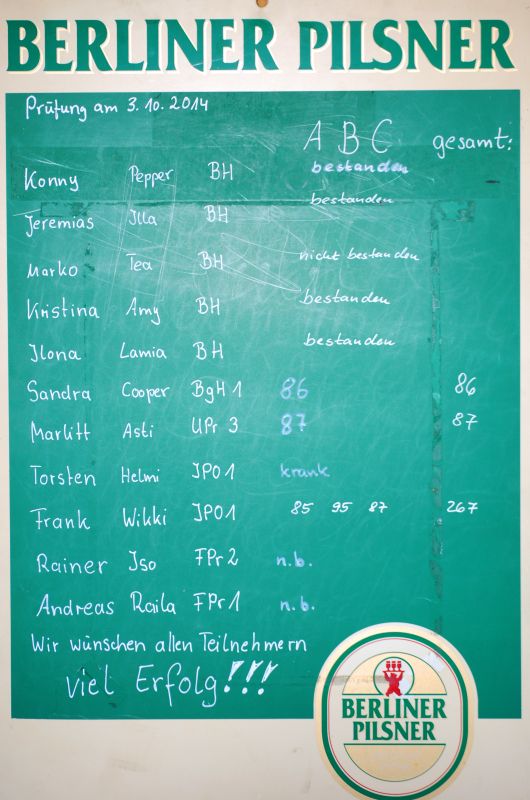 BERLINER PILSNER
Prüfung am 3.10.2014
A B C gesamt:
Konny Pepper BH bestanden
Jeremias Illa BH bestanden
Marko Tea BH nicht bestanden
Kristina Amy BH bestanden
Ilona Lamia BH bestanden
Sandra Cooper BgH 1 86 86
Marlitt Asti UPr 3 87 87
Torsten Helmi IPO1 krank
Frank Wikki IPO1 85 95 87 267
Rainer Iso FPr 2 n.b.
Andreas Raila FPr 1 n.b.
Wir wünschen allen Teilnehmern
viel Erfolg!!!
BERLINER
PILSNER